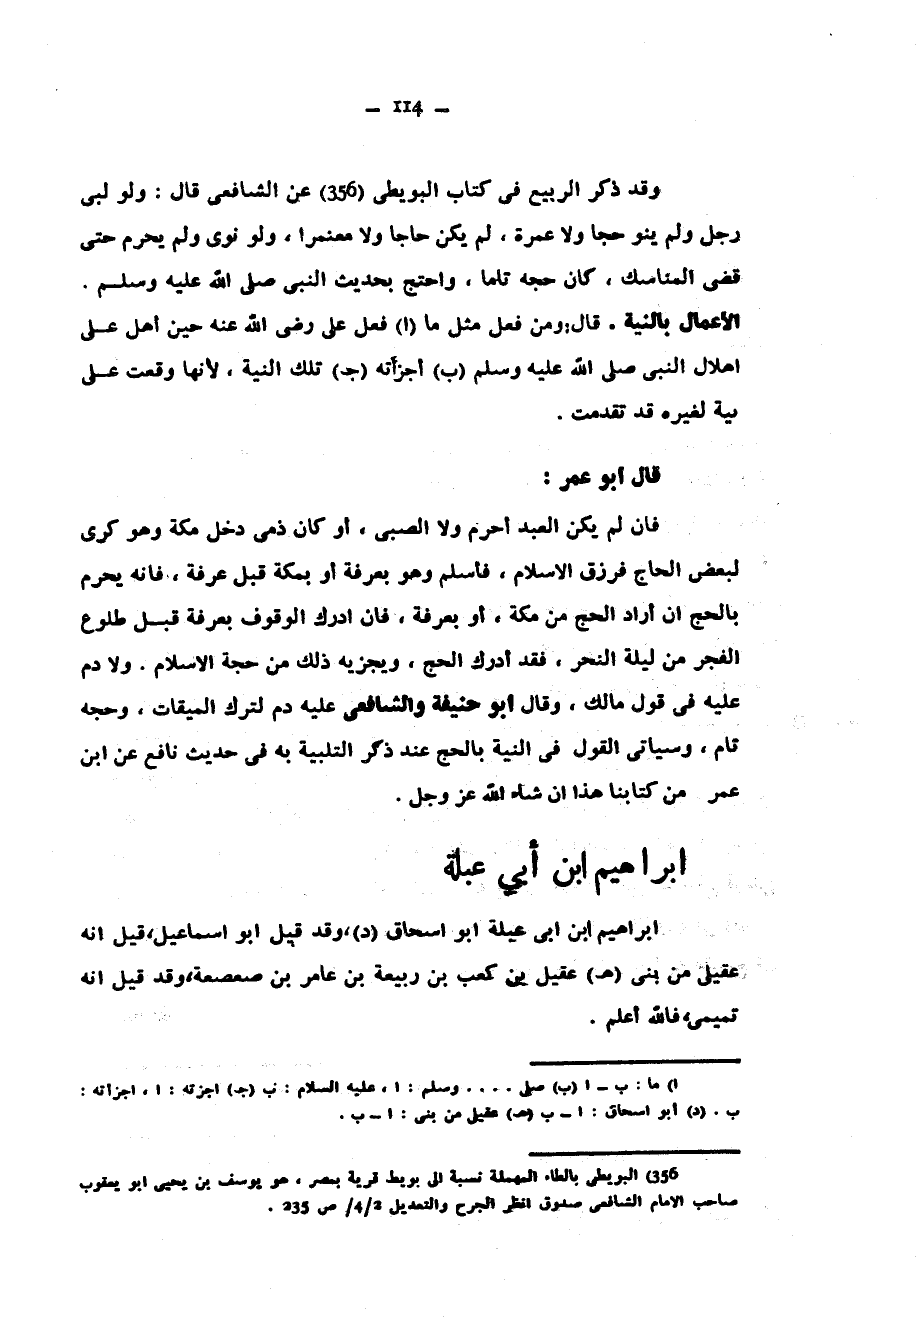 — 114 —
وقد ذكر الربيع فى كتاب البويطى (356) عن الشافعى قال : ولو لبى
رجل ولم ينو حجا ولا عمرة ، لم يكن حاجا ولا معتمرا ، ولو نوى ولم يحرم حتى
قضى المناسك ، كان حجه تاما ، واحتج بحديث النبى صلى الله عليه وسلم .
الأعمال بالنية . قال:ومن فعل مثل ما (ا) فعل على رضى الله عنه حين أهل على
اهلال النبى صلى الله عليه وسلم (ب) أجزأته (جـ) تلك النية ، لأنها وقعت على
نية لغيره قد تقدمت .
قال أبو عمر :
فان لم يكن العبد أحرم ولا الصبى ، أو كان ذمى دخل مكة وهو كرى
لبعض الحاج فرزق الاسلام ، فأسلم وهو بعرفة أو بمكة قبل عرفة ، فانه يحرم
بالحج ان أراد الحج من مكة ، أو بعرفة ، فان ادرك الوقوف بعرفة قبل طلوع
الفجر من ليلة النحر ، فقد أدرك الحج ، ويجزيه ذلك من حجة الاسلام . ولا دم
عليه فى قول مالك ، وقال أبو حنيفة والشافعى عليه دم لترك الميقات ، وحجه
تام ، وسياتى القول فى النية بالحج عند ذكر التلبية به فى حديث نافع عن ابن
عمر من كتابنا هذا ان شاء الله عز وجل .
ابراهيم ابن أبي عبلة
ابراهيم ابن ابى عبلة ابو اسحاق (د)،وقد قيل ابو اسماعيل،قيل انه
عقيلى من بنى (هـ) عقيل بن كعب بن ربيعة بن عامر بن صعصعة،وقد قيل انه
تميمى،فالله أعلم .
ا) ما : ب ــ ا (ب) صلى .... وسلم : ا ، عليه السلام : ب (جـ) اجزته : ا ، اجزأته :
ب . (د) أبو اسحاق : ا ــ ب (هـ) عقيل من بنى : ا ــ ب .
356) البويطى بالطاء المهملة نسبة الى بويط قرية بمصر ، هو يوسف بن يحيى ابو يعقوب
صاحب الامام الشافعى صدوق انظر الجرح والتعديل 4/2/ ص 235 .